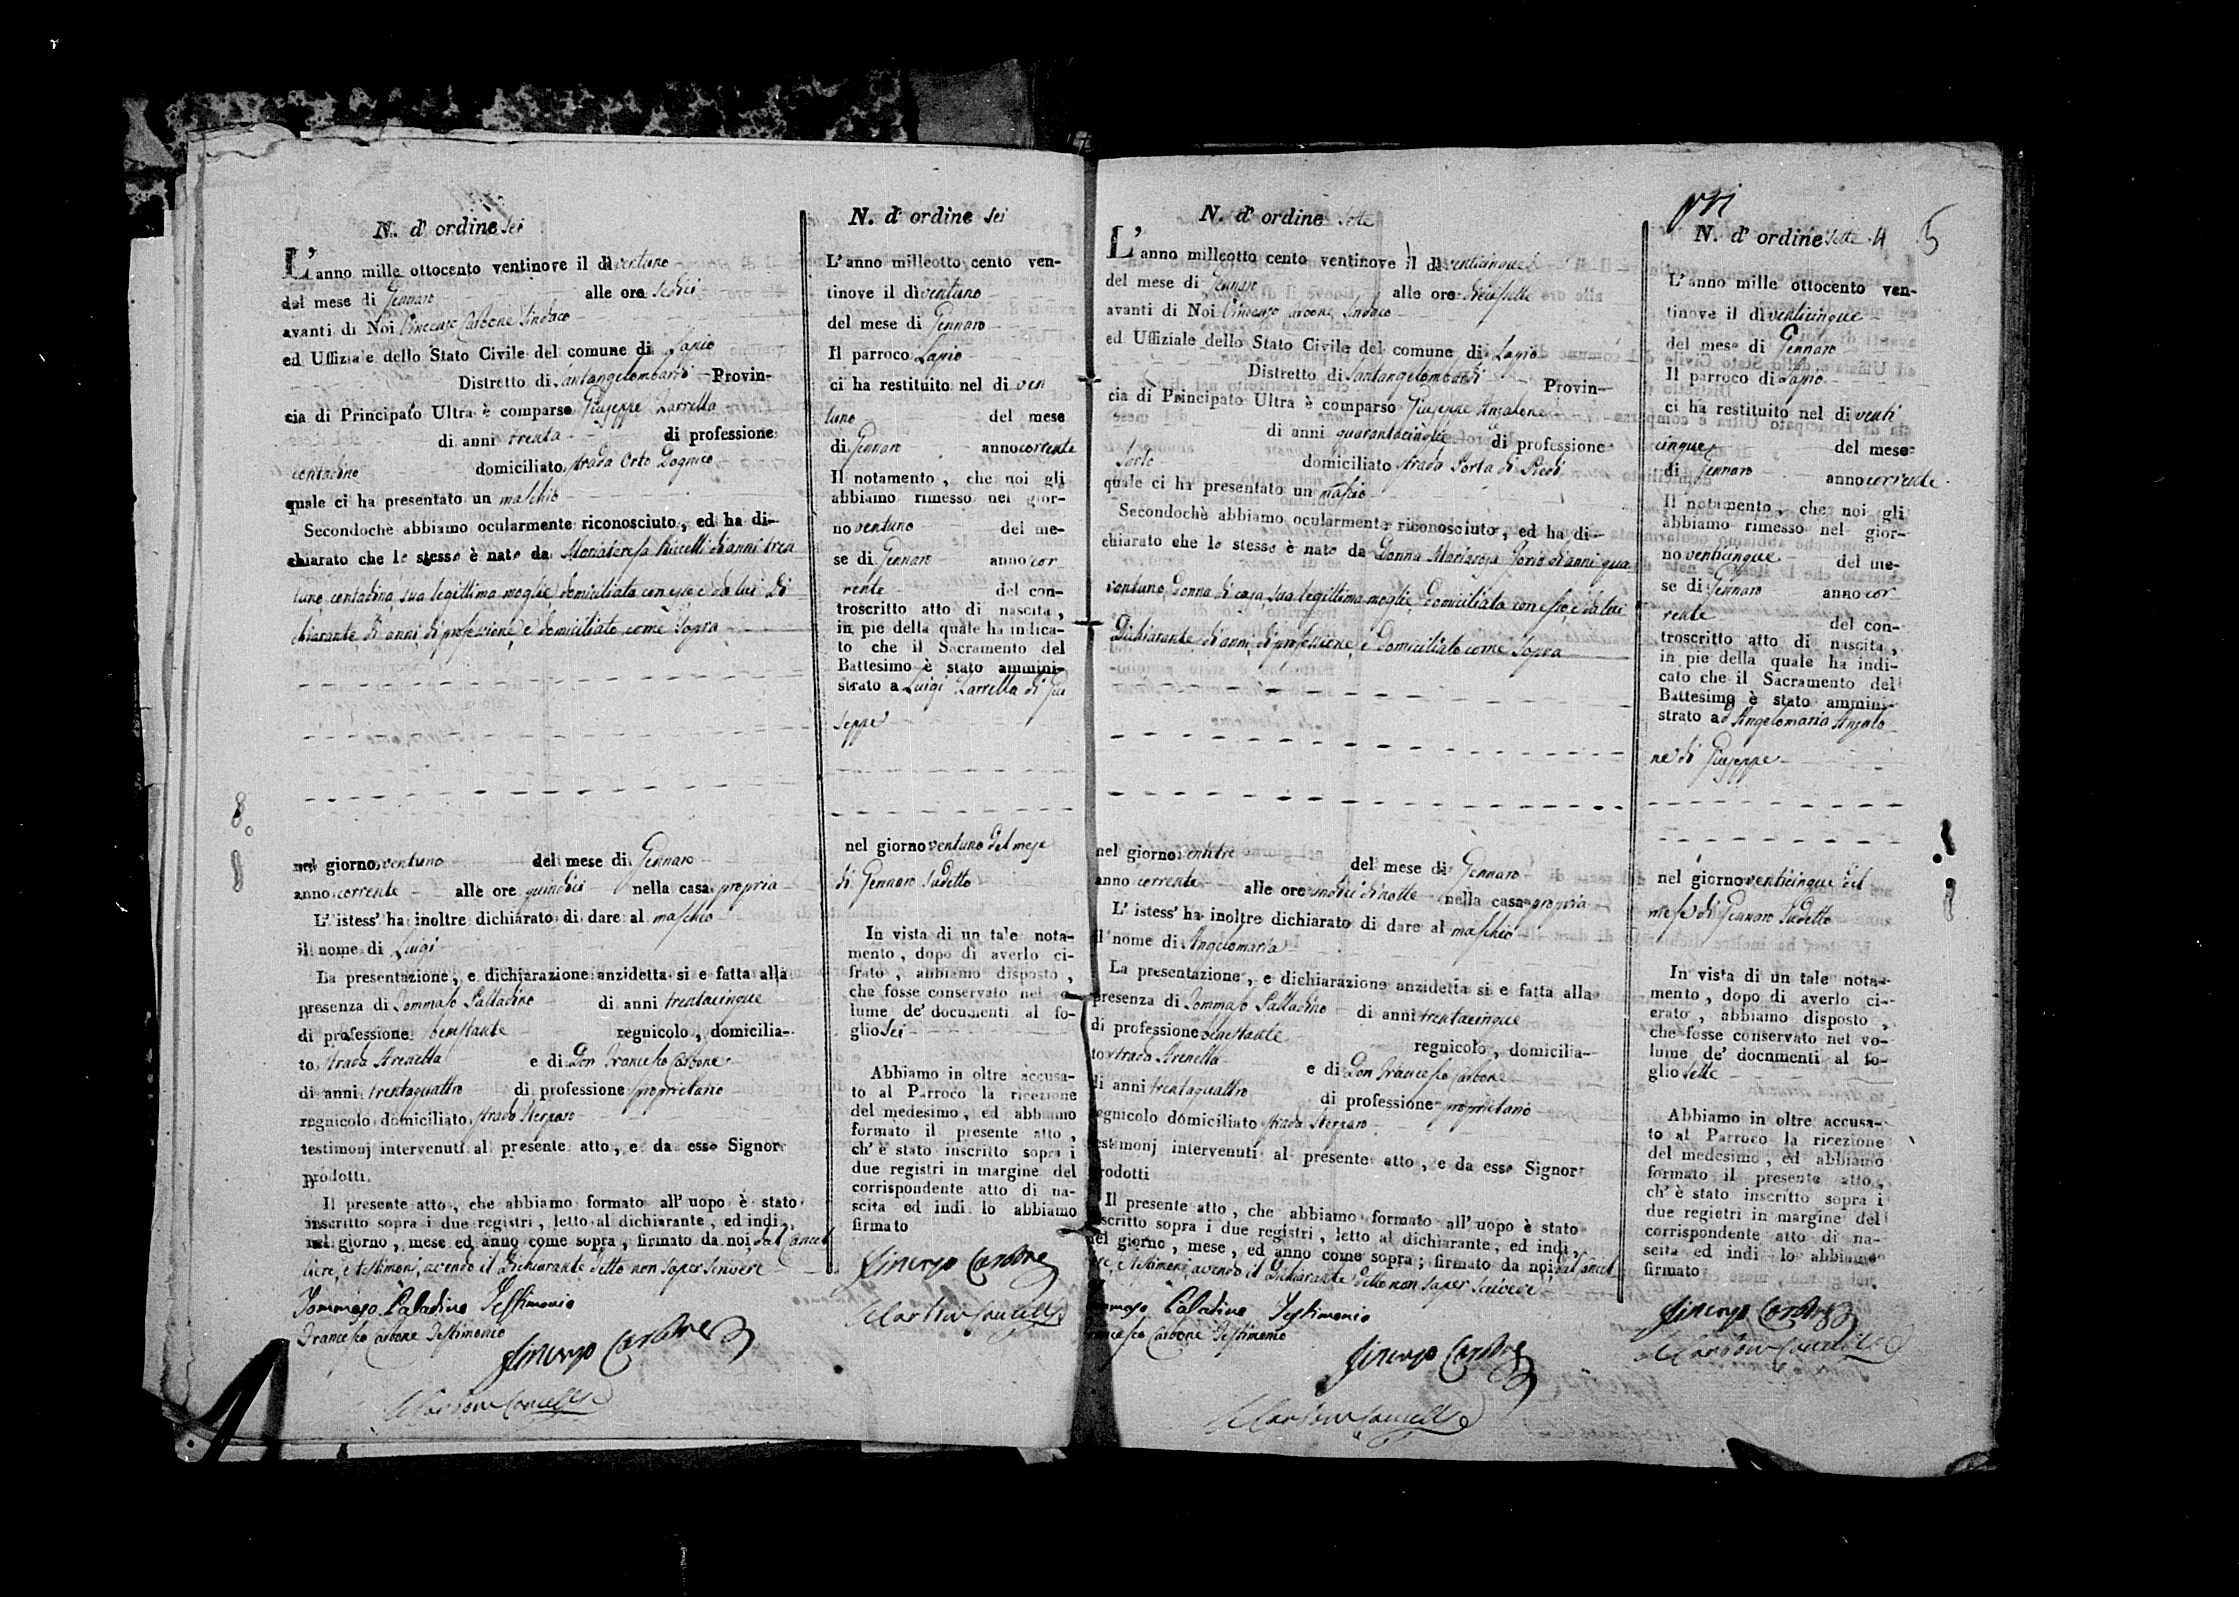 N. d' ordine sei
L' anno mille ottocento ventinove il dì ventuno
del mese di Gennaro alle ore sedici
avanti di Noi Vincenzo Carbone Sindaco
ed Uffiziale dello Stato Civile del comune di Lapio
Distretto di Santangelombardi Provin-
cia di Principato Ultra è comparso Giuseppe Zarrella
di anni trenta di professione
contadino domiciliato strada Orto Dognico
quale ci ha presentato un maschio
Secondochè abbiamo ocularmente riconosciuto, ed ha di-
chiarato che lo stesso è nato da Mariateresa di anni tren
tuno contadina sua legittima moglie domiciliata con esso e da lui Di
chiarante di anni, di professione, e domiciliato come sopra
nel giorno ventuno del mese di Gennaro
anno corrente alle ore quindici nella casa propria
L' istess' ha inoltre dichiarato di dare al maschio
il nome di Luigi
La presentazione, e dichiarazione anzidetta si e fatta alla
presenza di Tommaso Palladino di anni trentacinque
di professione benestante regnicolo, domicilia-
to strada Arenella e di Don Francesco Carbone
di anni trentaquattro di professione proprietario
regnicolo domiciliato strada
testimonj intervenuti al presente atto, e da esso Signor
prodotti.
Il presente atto, che abbiamo formato all' uopo è stato
inscritto sopra i due registri, letto al dichiarante, ed indi,
nel giorno, mese ed anno come sopra, firmato da noi, dal Cancel
liere, e testimoni, avendo il Dichiarante detto non saper scrivere
Tommaso Paladino Testimonio
Francesco Carbone Testimonio
Vincenzo Carbone
N. d' ordine sei
L' anno milleotto cento ven-
tinove il dì ventuno
del mese di Gennaro
Il parroco Lapio
ci ha restituito nel dì ven
tuno del mese
di Gennaro anno corrente
Il notamento, che noi gli
abbiamo rimesso nel gior-
no ventuno del me-
se di Gennaro anno cor
rente del con-
troscritto atto di nascita,
in pie della quale ha indica-
to che il Sacramento del
Battesimo è stato ammini-
strato a Luigi Zarrella di Giu
seppe
nel giorno ventuno del mese
di Gennaro sudetto
In vista di un tale nota-
mento, dopo di averlo ci-
frato, abbiamo disposto,
che fosse conservato nel vo-
lume de' documenti al fo-
glio sei
Abbiamo in oltre accusa-
to al Parroco la ricezione
del medesimo, ed abbiamo
formato il presente atto,
ch' è stato inscritto sopra i
due registri in margine del
corrispondente atto di na-
scita ed indi lo abbiamo
firmato
Vincenzo Carbone
N. d' ordine sette
L' anno milleotto cento ventinove il dì venticinque
del mese di Gennaro alle ore diecisette
avanti di Noi Vincenzo Carbone Sindaco
ed Uffiziale dello Stato Civile del comune di Lapio
Distretto di Santangelombardi Provin-
cia di Principato Ultra è comparso Giuseppe Anzalone
di anni quarantacinque di professione
domiciliato strada Porta di Piedi
quale ci ha presentato un maschio
Secondochè abbiamo ocularmente riconosciuto, ed ha di-
chiarato che lo stesso è nato da Donna Mariarosa Iorio di anni qua
rantuno, donna di casa sua legittima moglie, domiciliata con esso, e da lui
Dichiarante di anni, di professione, e domiciliato come sopra
nel giorno ventitre del mese di Gennaro
anno corrente alle ore undici di notte nella casa propria
L' istess' ha inoltre dichiarato di dare al maschio
il nome di Angelomaria
La presentazione, e dichiarazione anzidetta si e fatta alla
presenza di Tommaso Palladino di anni trentacinque
di professione benestante regnicolo, domicilia-
to strada Arenella e di Don Francesco Carbone
di anni trentaquattro di professione proprietario
regnicolo domiciliato strada
testimonj intervenuti al presente atto, e da esso Signor
prodotti
Il presente atto, che abbiamo formato all' uopo è stato
inscritto sopra i due registri, letto al dichiarante, ed indi,
nel giorno, mese, ed anno come sopra; firmato da noi, dal Cancel
liere, e testimoni, avendo il Dichiarante detto non saper scrivere
Tommaso Paladino Testimonio
Francesco Carbone Testimonio
Vincenzo Carbone
N. d' ordine sette 4 5
L' anno mille ottocento ven-
tinove il dì venticinque
del mese di Gennaro
Il parroco di Lapio
ci ha restituito nel dì venti
cinque del mese
di Gennaro anno corrente
Il notamento, che noi gli
abbiamo rimesso nel gior-
no venticinque del me-
se di Gennaro anno cor
rente del con-
troscritto atto di nascita,
in pie della quale ha indi-
cato che il Sacramento del
Battesimo è stato ammini-
strato ad Angelomaria Anzalo
ne di Giuseppe
nel giorno venticinque del
mese di Gennaro sudetto
In vista di un tale nota-
mento, dopo di averlo ci-
erato, abbiamo disposto,
che fosse conservato nel vo-
lume de' docnmenti al fo-
glio sette
Abbiamo in oltre accusa-
to al Parroco la ricezione
del medesimo, ed abbiamo
formato il presente atto,
ch' è stato inscritto sopra i
due registri in margine del
corrispondente atto di na-
scita ed indi lo abbiamo
firmato
Vincenzo Carbone